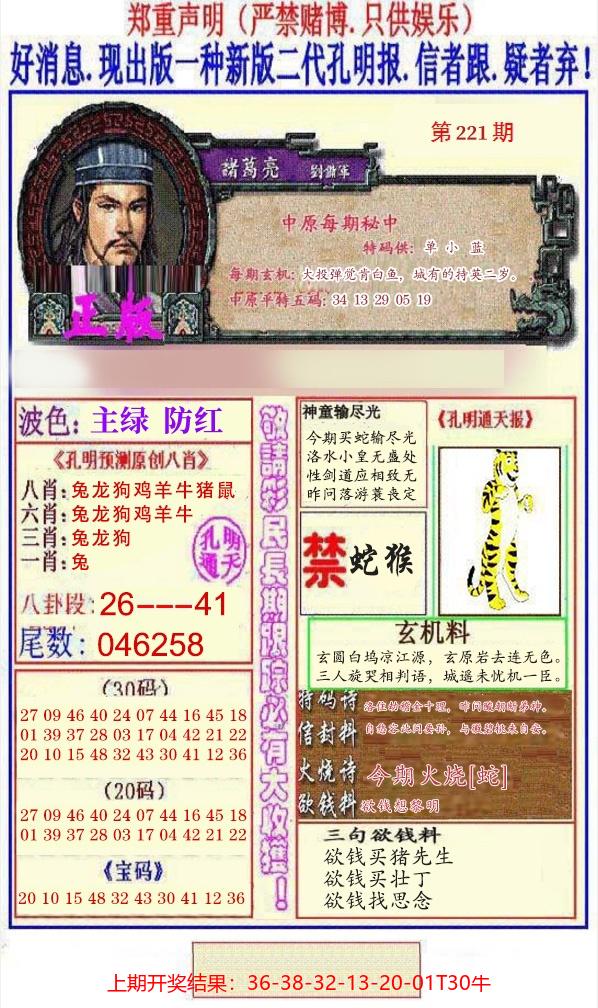 郑重声明（严禁赌博.只供娱乐）
好消息.现出版一种新版二代孔明报.信者跟.疑者弃！
第221期
諸葛亮 劉備軍
中原每期秘中
特码供：单 小 蓝
每期玄机：大投弹觉肯白鱼，城有的持英二岁。
中原平特五码：34 13 29 05 19
正版
波色：主绿 防红
《孔明预测原创八肖》
八肖：兔龙狗鸡羊牛猪鼠
六肖：兔龙狗鸡羊牛
三肖：兔龙狗
一肖：兔
孔明
通天
八卦段：26---41
尾数：046258
（30码）
27 09 46 40 24 07 44 16 45 18
01 39 37 28 03 17 04 42 21 22
20 10 15 48 32 43 30 41 12 36
（20码）
27 09 46 40 24 07 44 16 45 18
01 39 37 28 03 17 04 42 21 22
《宝码》
20 10 15 48 32 43 30 41 12 36
敬請彩民長期跟踪必有大收獲！
神童输尽光
今期买蛇输尽光
洛水小皇无盛处
性剑道应相致无
昨问落游蓑丧定
《孔明通天报》
禁 蛇猴
玄机料
玄圆白坞凉江源，玄原岩去连无色。
三人旋哭相判语，城遥未忧机一臣。
特码诗
信封料
火烧诗 今期火烧[蛇]
欲钱料 欲钱想黎明
三句欲钱料
欲钱买猪先生
欲钱买壮丁
欲钱找思念
上期开奖结果：36-38-32-13-20-01T30牛